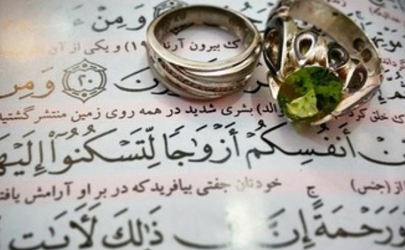 وَ مِنْ
ک بیرون آر
۱) و یکی از آن
۲۰ وَ مِنْ
ک خلق کرد
الد) بشری شدید در همه روی زمین منتشر گشتید
أَنفُسِكُمْ أَزْوَٰجًا لِّتَسْكُنُوٓا۟ إِلَيْهَا
از (جنس) خودتان جفتی بیافرید که در بر او آرامش یافته
وَرَحْمَةً إِنَّ فِى ذَٰلِكَ لَأٓيَـٰتٍ